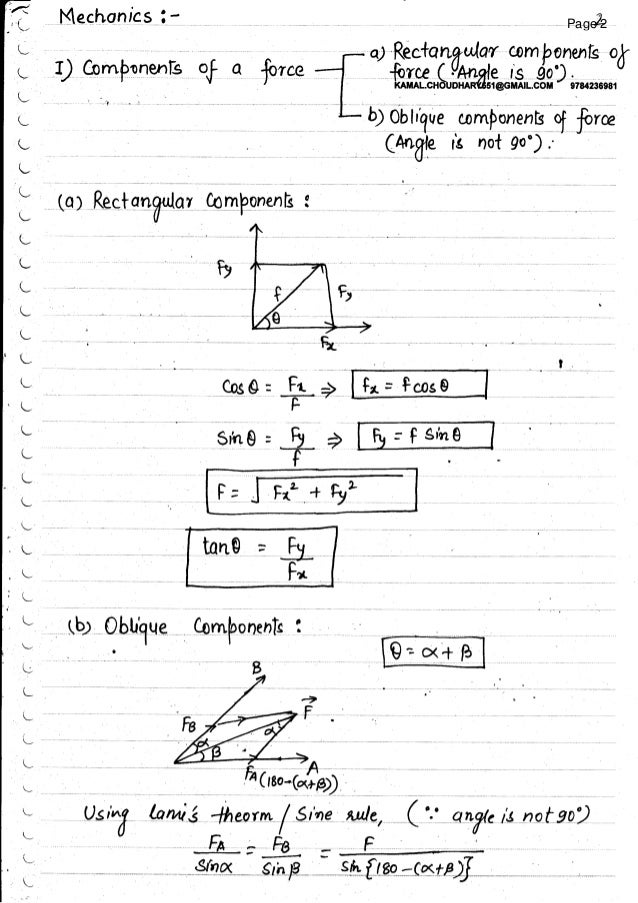 Mechanics :-
Page 2
I) Components of a force
a) Rectangular components of
force (∵ Angle is 90°).
KAMAL.CHOUDHARY651@GMAIL.COM 9784236981
b) Oblique components of force
(Angle is not 90°).
(a) Rectangular Components :
Fy
f
Fy
θ
Fx
Cos θ = Fx/F ⇒ fx = f cos θ
Sin θ = Fy/f ⇒ Fy = f Sin θ
F = √Fx² + Fy²
tan θ = Fy/Fx
(b) Oblique Components :
θ = α + β
B
FB
F
α
α
β
FA
A
(180-(α+β))
Using lami's theorm / Sine rule, (∵ angle is not 90°)
FA/Sinα = FB/Sin β = F/Sin {180-(α+β)}